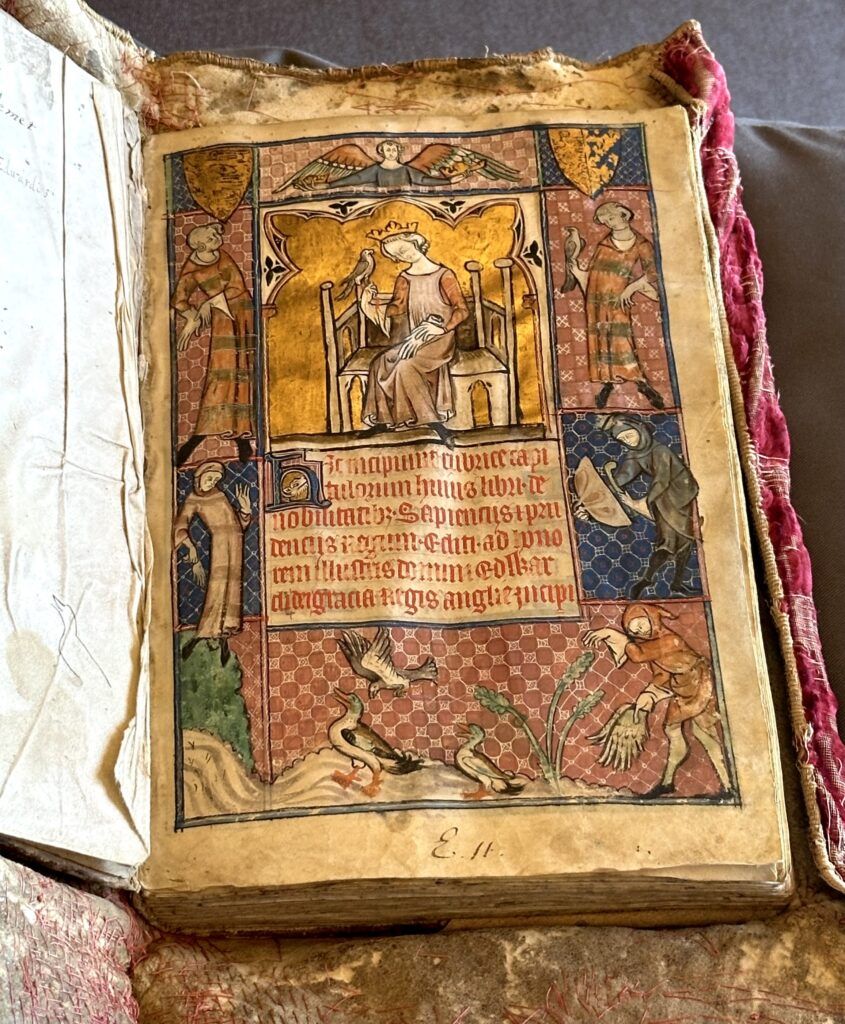 Edwardus
Hic incipiunt rubrice capi
tulorum huius libri de
nobilitatib; Sapiencijs ⁊ pru
dencijs regum Editi ad hono
rem illustris domini Edwar
di dei gracia Regis anglie incipi
E. 11.